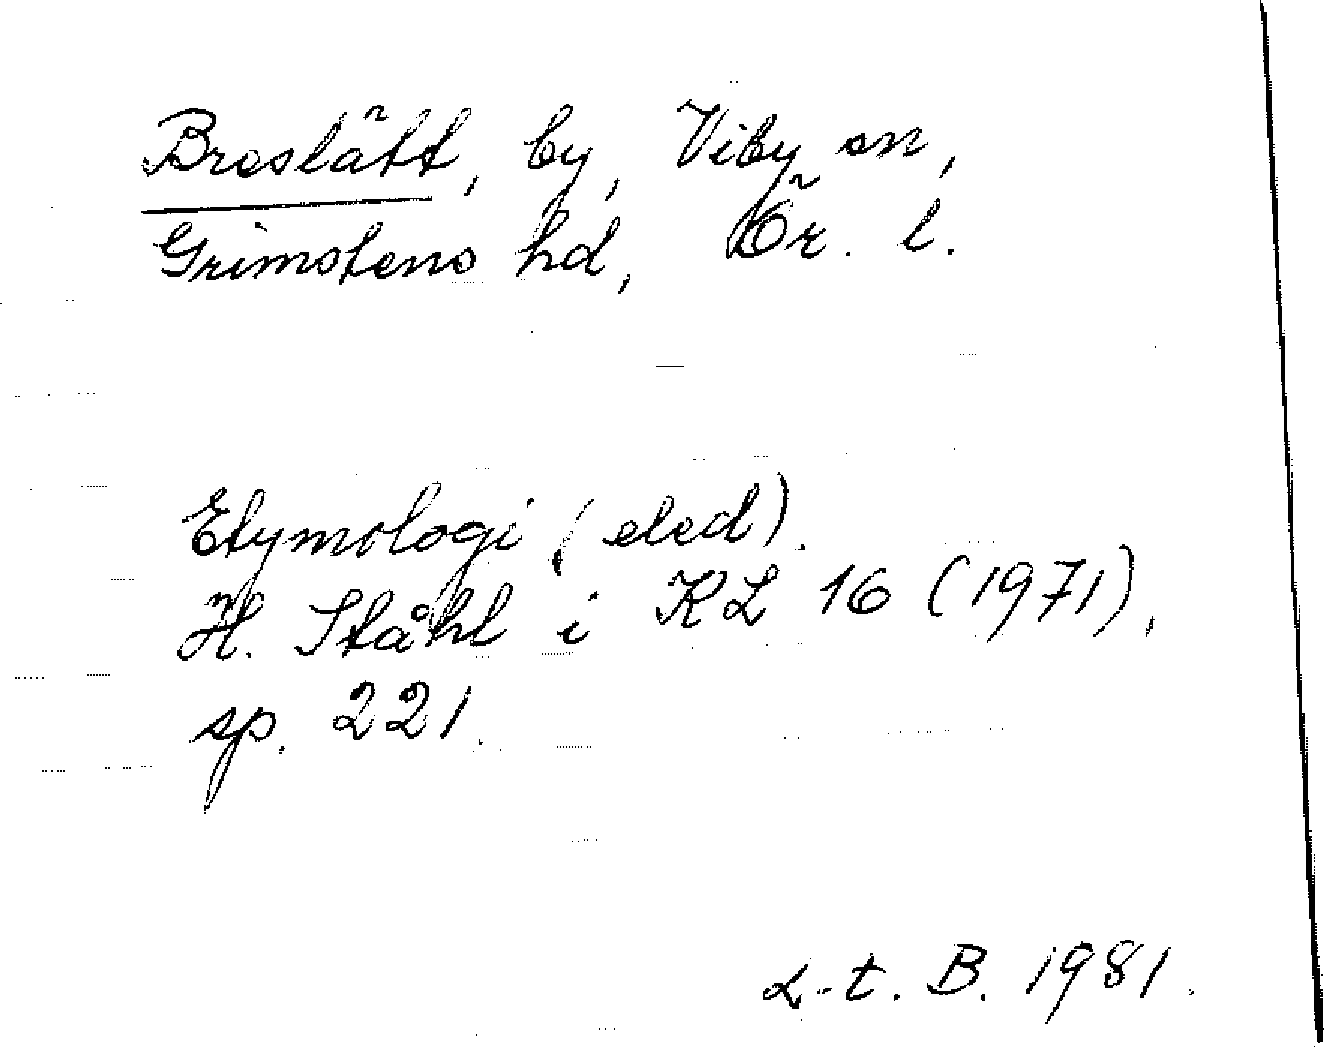 Breslätt, by, Viby sn,
Grimstens hd, Ör. l.
Etymologi (eled).
H. Ståhl i KL 16 (1971),
sp. 221.
L-t. B. 1981.